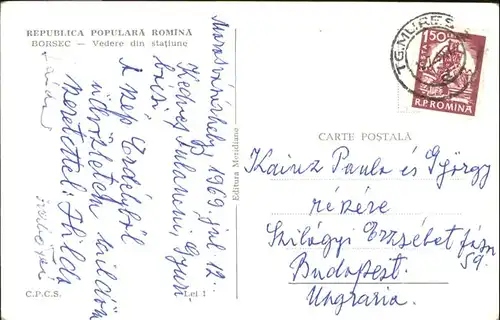 REPUBLICA POPULARĂ ROMÎNĂ
BORSEC — Vedere din stațiune
Marosvásárhely, 1969 júl 12.
Kedves Gyuri
bácsi
A szép Erdélyből
üdvözletem küldöm
szeretettel: Hilda
C.P.C.S.
Lei 1
Editura Meridiane
TG. MUREȘ
1,50
POSTA
R.P.ROMINA
CARTE POȘTALĂ
Kainz Paula és György
részére
Szilágyi Erzsébet fasor
59.
Budapest.
Ungraria.